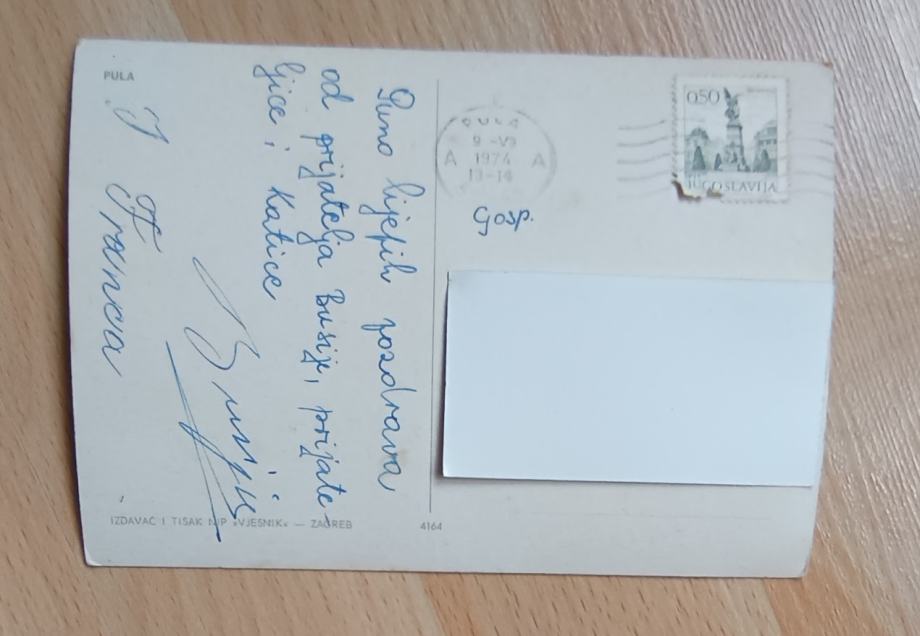 PULA
Puno lijepih pozdrava
od prijatelja Busije, prijate-
ljice i Katice
Busija
I F
Franca
IZDAVAČ I TISAK NIP »VJESNIK« — ZAGREB
4164
PULA
9-VI
1974
13-14
A A
0,50
JUGOSLAVIJA
Gosp.